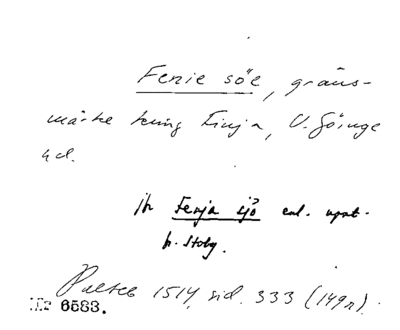 Fenie söe, gräns-
märke kring Finja, V. Göinge
hd.
jfr Fenja sjö enl. uppt.
h. Stoby.
Palteb 1514, sid. 333 (149r).
6583.